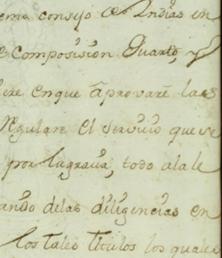 ema consejo de Indias en
e composision Quarto, y
ere enque aprovare las
Regulare el servicio que se
por la gravã, todo ala le
ando delas diligencias en
los tales titulos los quales